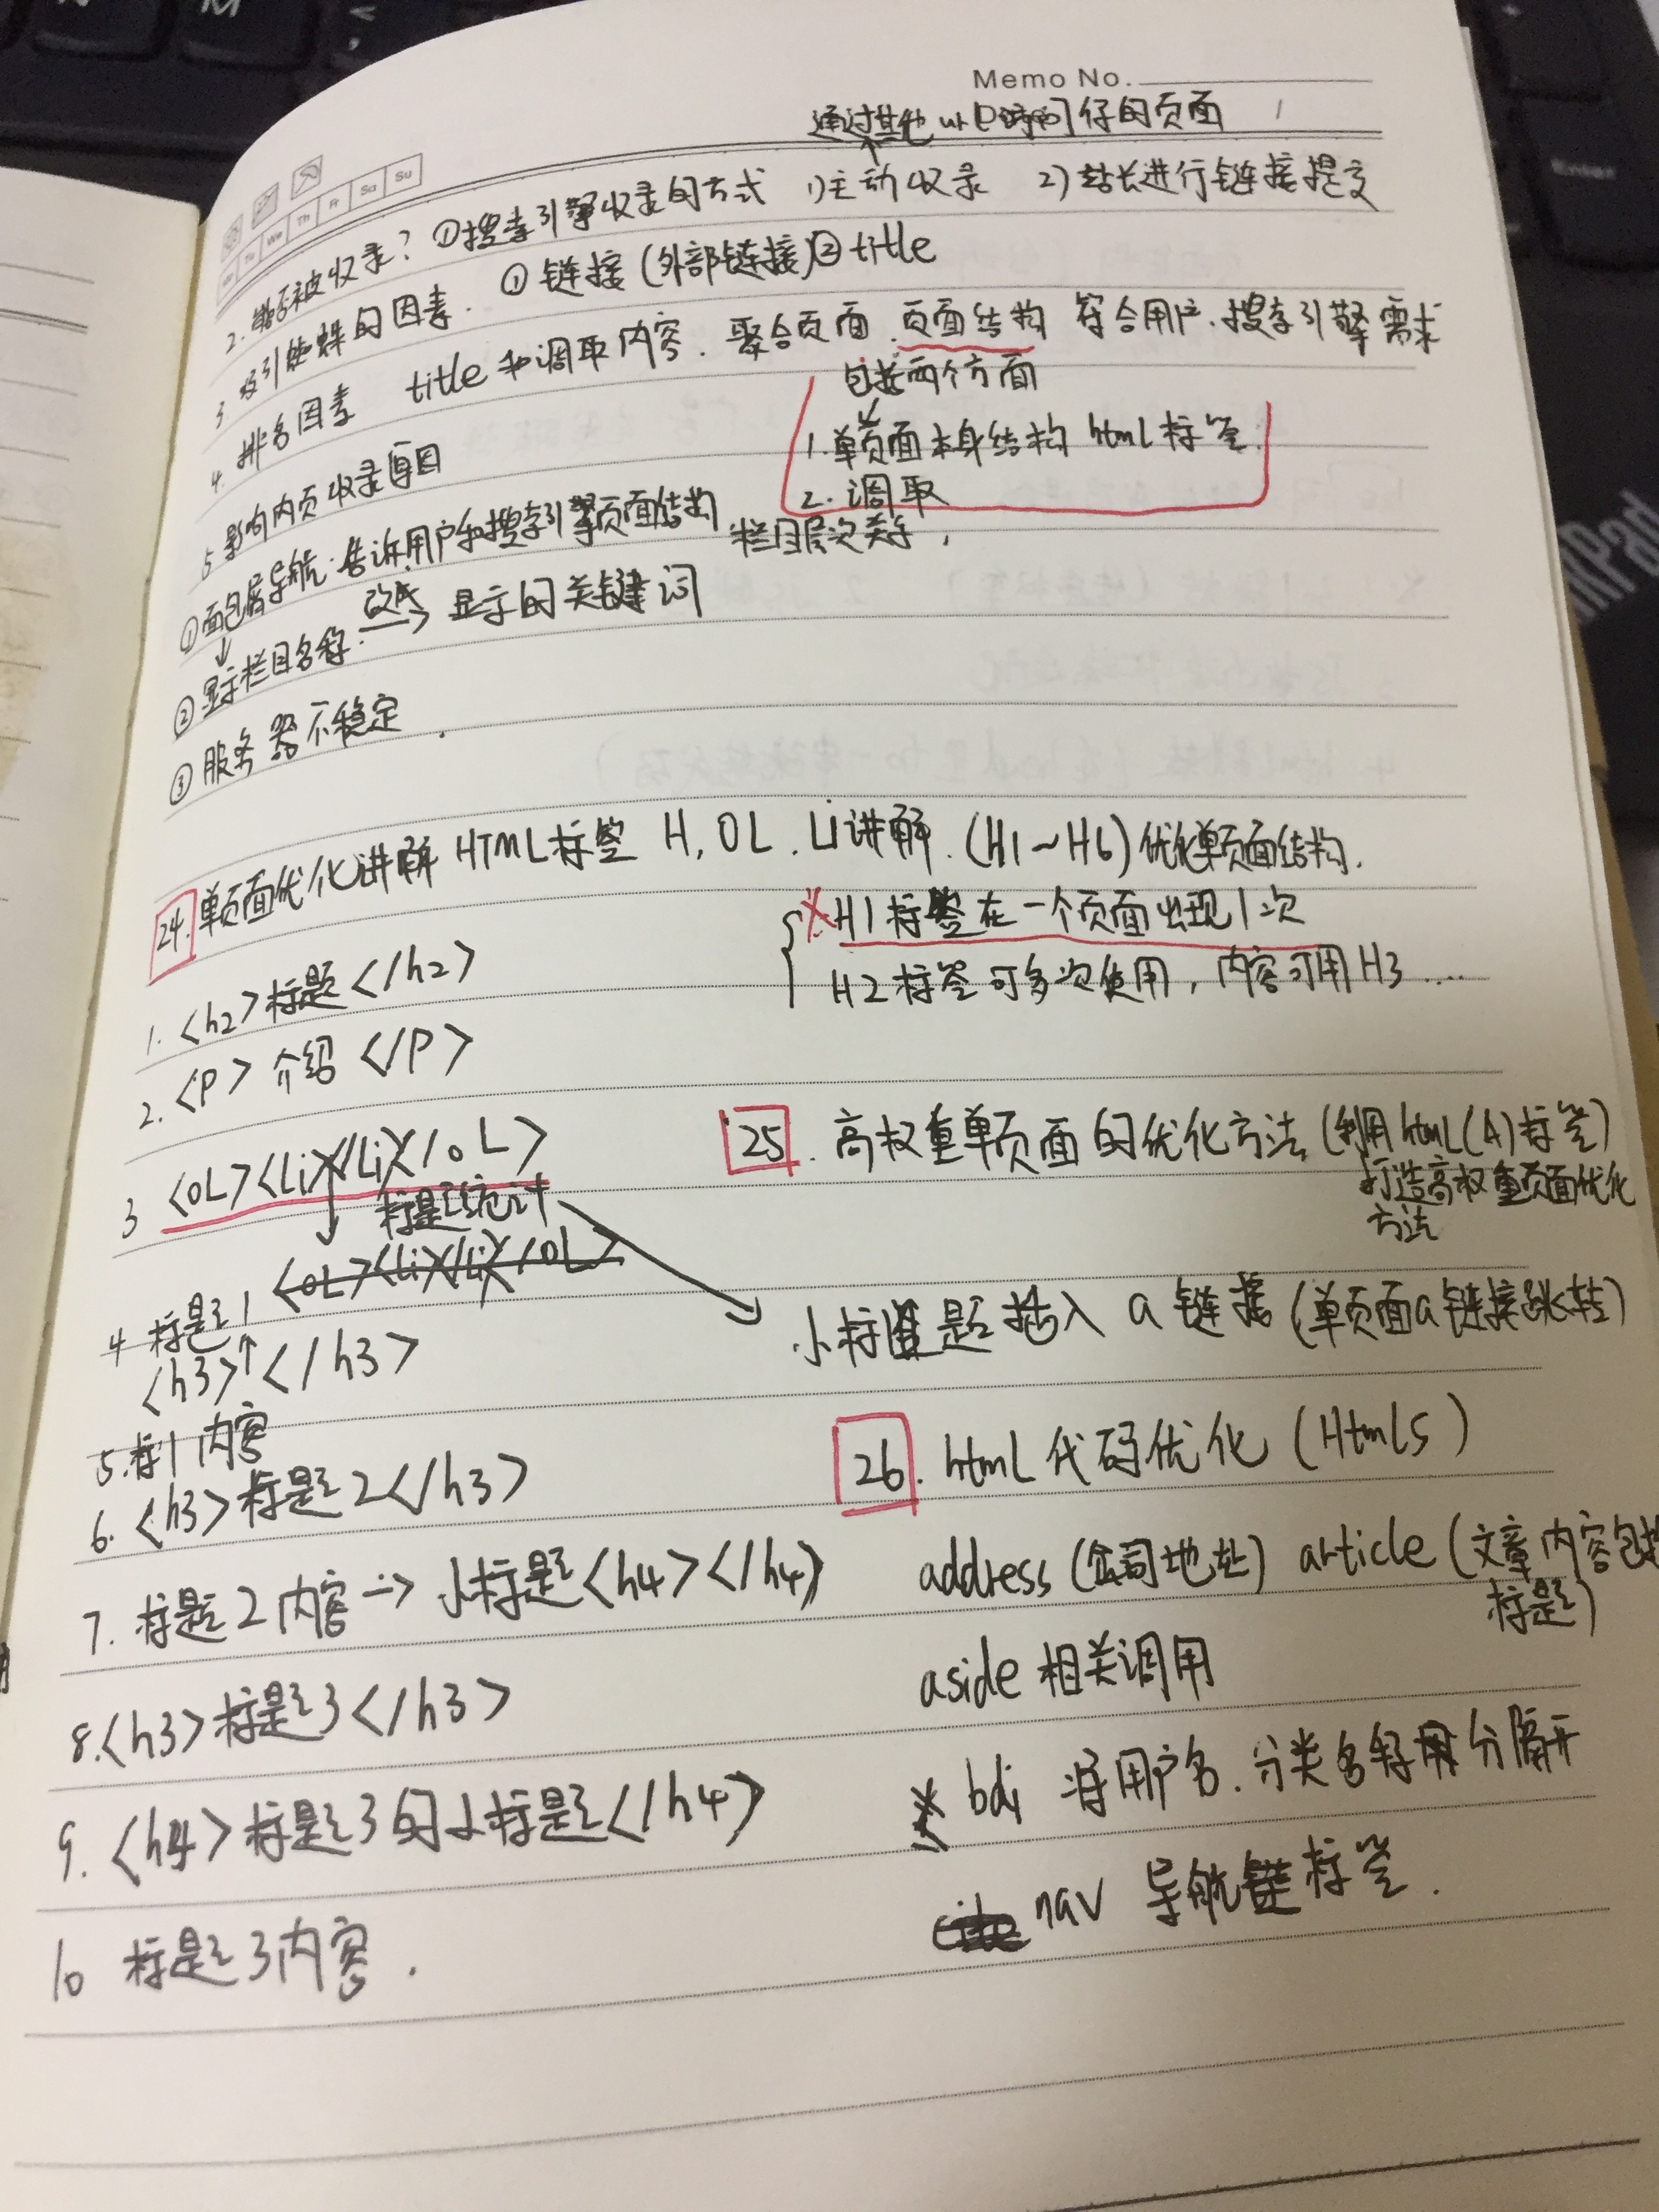 Memo No.
通过其他url访问你的页面
We Th Fr Sa Su
2. 能否被收录? ①搜索引擎收录的方式 1)主动收录 2)站长进行链接提交
3. 吸引蜘蛛的因素. ①链接(外部链接)②title
4. 排名因素 title和调取内容. 聚合页面. 页面结构 符合用户.搜索引擎需求
包括两个方面
1. 单页面本身结构 html标签.
2. 调取
5 影响内页收录原因
①面包屑导航: 告诉用户和搜索引擎页面结构 栏目层次关系,
②显示栏目名称. 改成→ 显示的关键词
③服务器不稳定.
24. 单页面优化讲解 HTML标签 H, OL. Li讲解. (H1~H6)优化单页面结构.
H1标签在一个页面出现1次
H2标签可多次使用, 内容可用H3 ....
1. <h2>标题</h2>
2. <P> 介绍 </P>
3 <OL><Li></Li></OL>
标题统计
25. 高权重单页面的优化方法 (利用html(A)标签)
打造高权重页面优化
方法
<OL><Li></Li></OL>
小标题插入 a链接 (单页面a链接跳转)
4 标题1
<h3>↑</h3>
5. 标1内容
6. <h3>标题2</h3>
26. html代码优化 (Html5)
7. 标题2内容 → 小标题<h4></h4>
address (公司地址) article (文章内容包括
标题)
8. <h3>标题3</h3>
aside 相关调用
9. <h4>标题3的小标题</h4>
bdi 将用户名. 分类名称 分隔开
nav 导航 标签.
10 标题3内容.